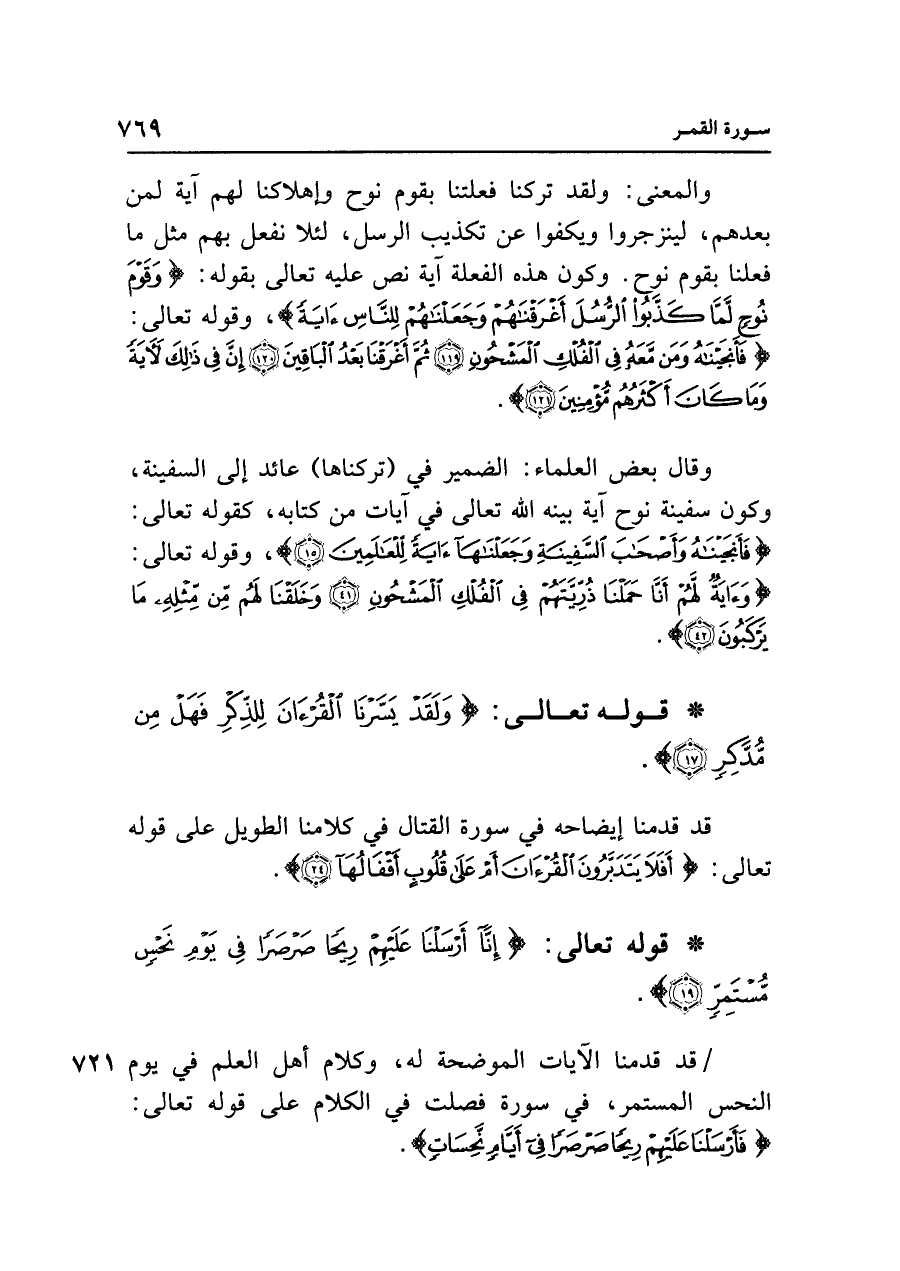 سورة القمر ٧٦٩
والمعنى: ولقد تركنا فعلتنا بقوم نوح وإهلاكنا لهم آية لمن
بعدهم، لينزجروا ويكفوا عن تكذيب الرسل، لئلا نفعل بهم مثل ما
فعلنا بقوم نوح. وكون هذه الفعلة آية نص عليه تعالى بقوله: ﴿ وَقَوْمَ
نُوحٍ لَّمَّا كَذَّبُوا۟ ٱلرُّسُلَ أَغْرَقْنَٰهُمْ وَجَعَلْنَٰهُمْ لِلنَّاسِ ءَايَةً ﴾، وقوله تعالى:
﴿ فَأَنجَيْنَٰهُ وَمَن مَّعَهُۥ فِى ٱلْفُلْكِ ٱلْمَشْحُونِ ١١٩ ثُمَّ أَغْرَقْنَا بَعْدُ ٱلْبَاقِينَ ١٢٠ إِنَّ فِى ذَٰلِكَ لَءَايَةً
وَمَا كَانَ أَكْثَرُهُم مُّؤْمِنِينَ ١٢١ ﴾.
وقال بعض العلماء: الضمير في (تركناها) عائد إلى السفينة،
وكون سفينة نوح آية بينه الله تعالى في آيات من كتابه، كقوله تعالى:
﴿ فَأَنجَيْنَٰهُ وَأَصْحَٰبَ ٱلسَّفِينَةِ وَجَعَلْنَٰهَآ ءَايَةً لِّلْعَٰلَمِينَ ١٥ ﴾، وقوله تعالى:
﴿ وَءَايَةٌ لَّهُمْ أَنَّا حَمَلْنَا ذُرِّيَّتَهُمْ فِى ٱلْفُلْكِ ٱلْمَشْحُونِ ٤١ وَخَلَقْنَا لَهُم مِّن مِّثْلِهِۦ مَا
يَرْكَبُونَ ٤٢ ﴾.
* قوله تعالى: ﴿ وَلَقَدْ يَسَّرْنَا ٱلْقُرْءَانَ لِلذِّكْرِ فَهَلْ مِن
مُّدَّكِرٍ ١٧ ﴾.
قد قدمنا إيضاحه في سورة القتال في كلامنا الطويل على قوله
تعالى: ﴿ أَفَلَا يَتَدَبَّرُونَ ٱلْقُرْءَانَ أَمْ عَلَىٰ قُلُوبٍ أَقْفَالُهَآ ٢٤ ﴾.
* قوله تعالى: ﴿ إِنَّآ أَرْسَلْنَا عَلَيْهِمْ رِيحًا صَرْصَرًا فِى يَوْمِ نَحْسٍ
مُّسْتَمِرٍّ ١٩ ﴾.
/ قد قدمنا الآيات الموضحة له، وكلام أهل العلم في يوم ٧٢١
النحس المستمر، في سورة فصلت في الكلام على قوله تعالى:
﴿ فَأَرْسَلْنَا عَلَيْهِمْ رِيحًا صَرْصَرًا فِىٓ أَيَّامٍ نَّحِسَاتٍ ﴾.